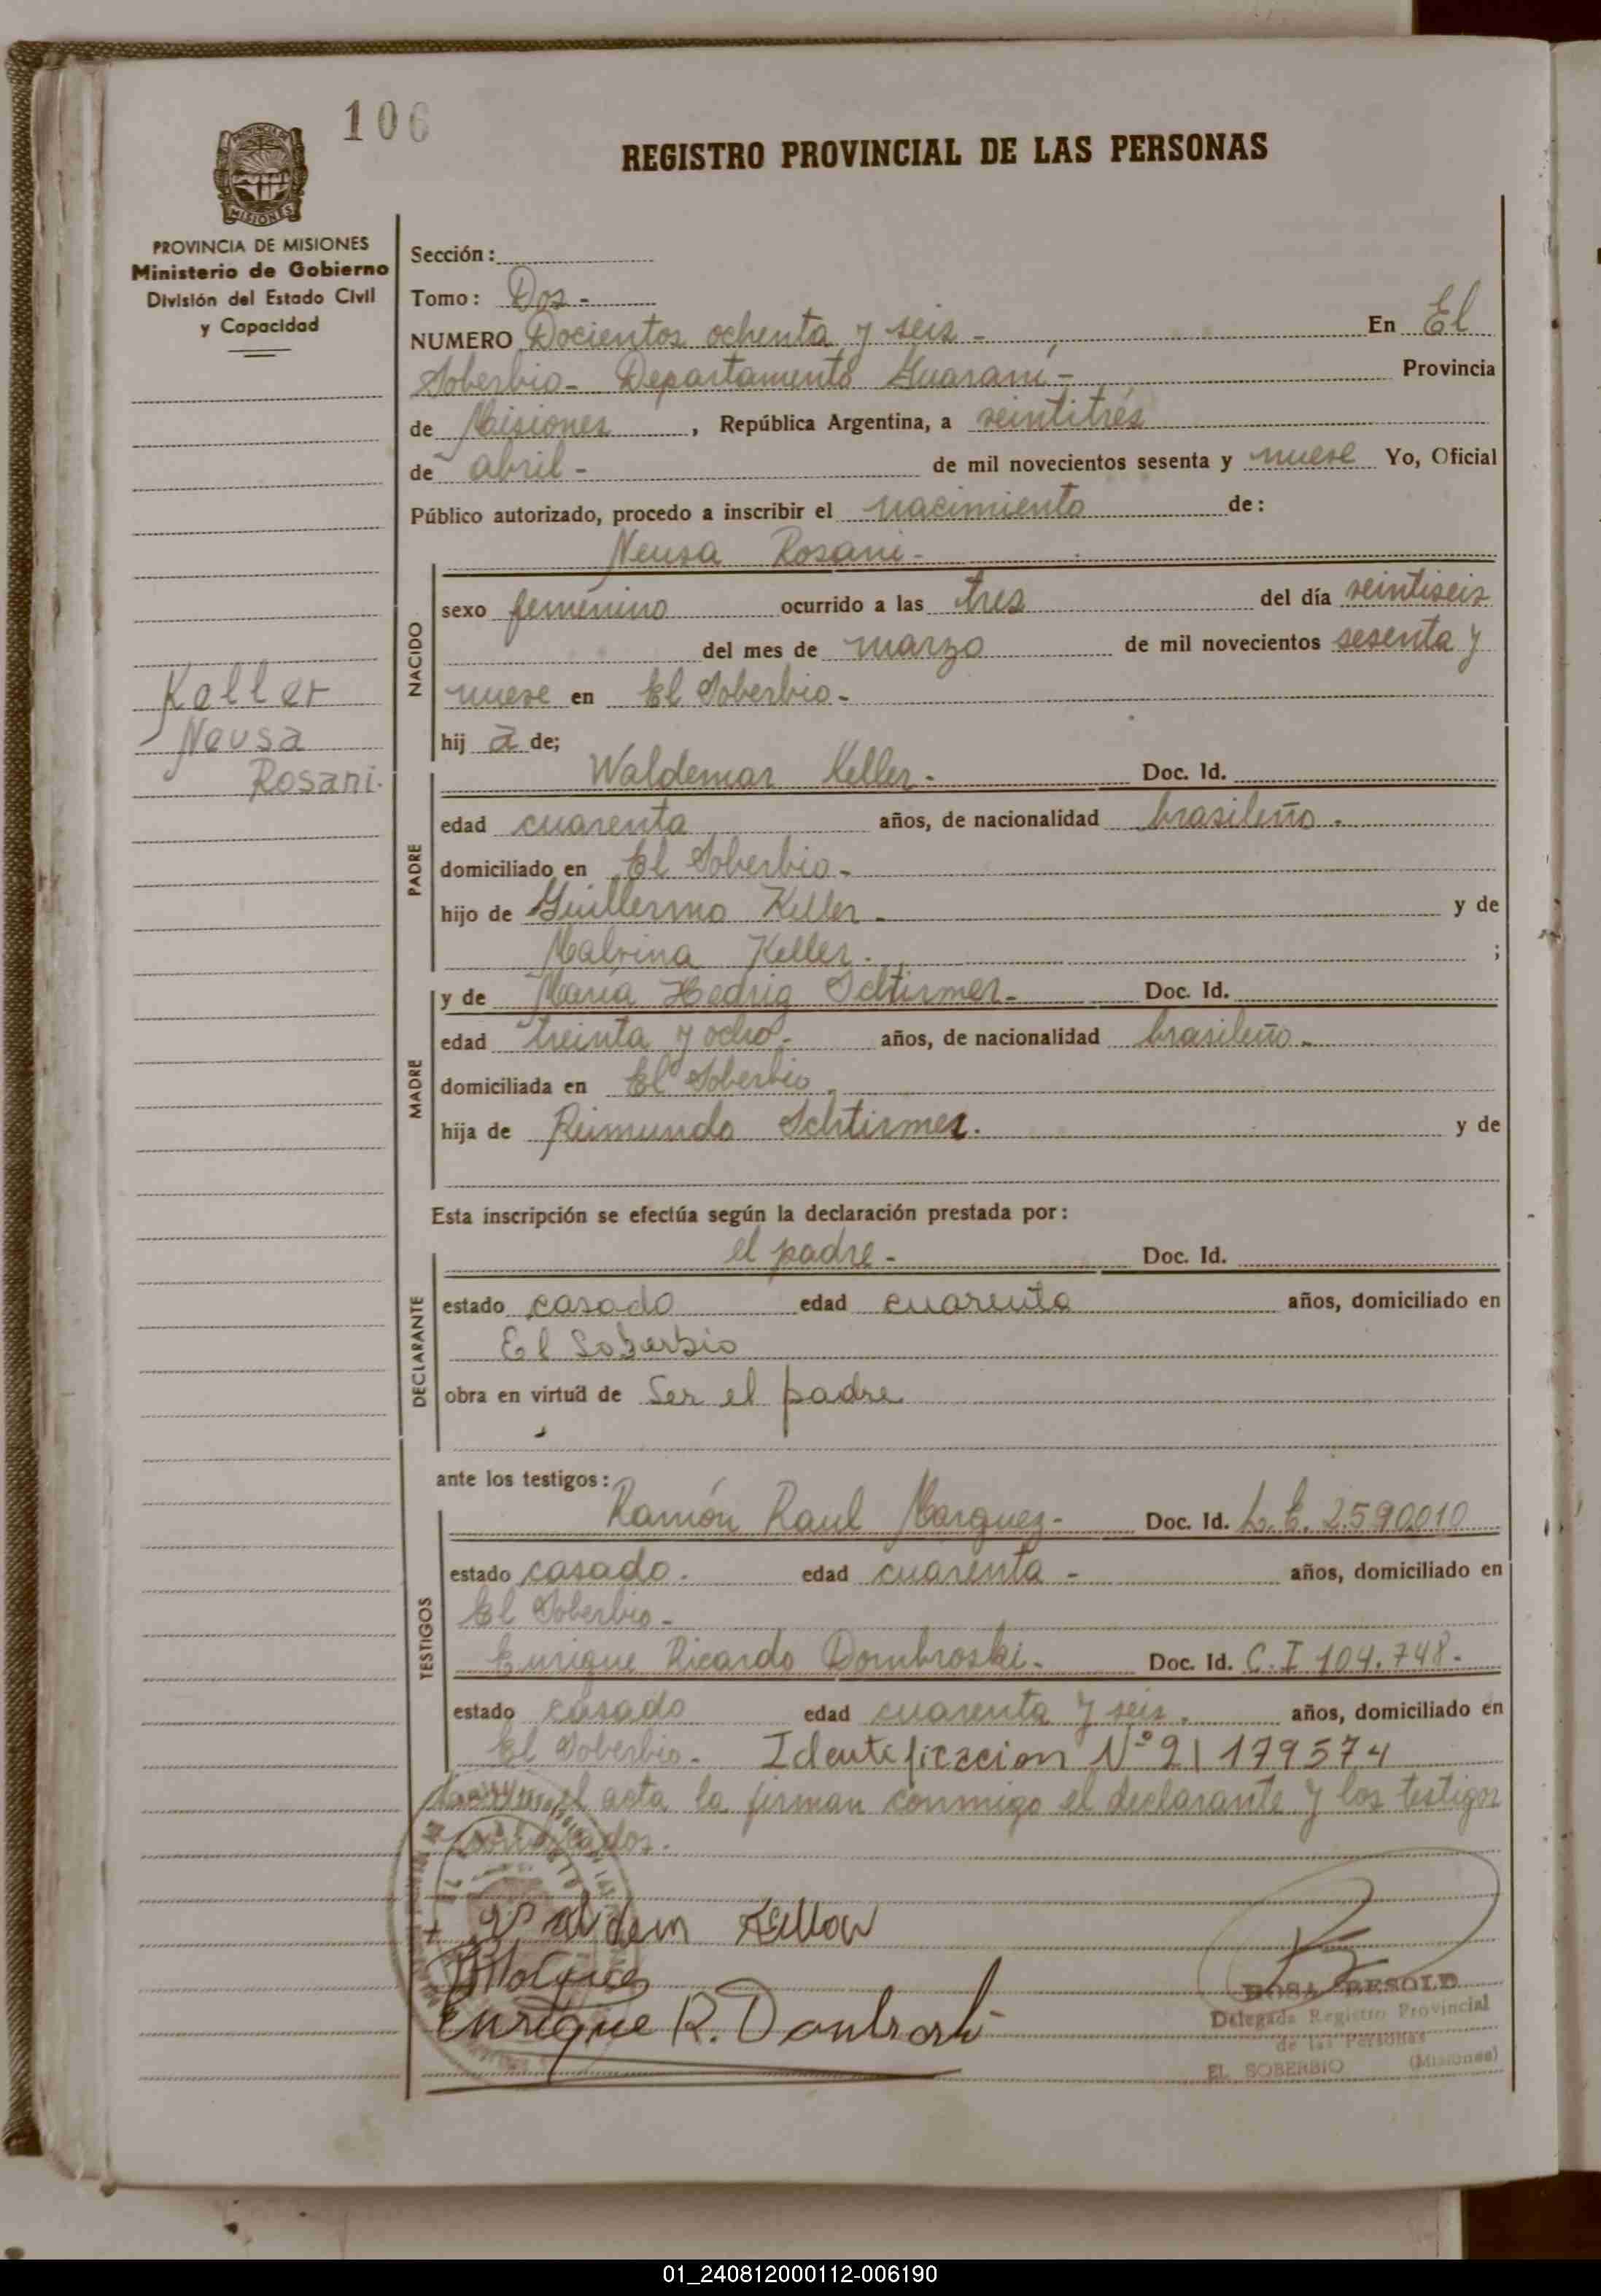 106
REGISTRO PROVINCIAL DE LAS PERSONAS
PROVINCIA DE MISIONES
Ministerio de Gobierno
División del Estado Civil
y Capacidad
Keller
Neusa
Rosani.
Sección:
Tomo: Dos -
NUMERO Docientos ochenta y seis - En El
Soberbio - Departamento Guaraní - Provincia
de Misiones, República Argentina, a veintitrés
de abril - de mil novecientos sesenta y nueve Yo, Oficial
Público autorizado, procedo a inscribir el nacimiento de:
Neusa Rosani -
NACIDO
sexo femenino ocurrido a las tres del día veintiseis
del mes de marzo de mil novecientos sesenta y
nueve en El Soberbio -
hij a de;
PADRE
Waldemar Keller - Doc. Id.
edad cuarenta años, de nacionalidad brasileño -
domiciliado en El Soberbio -
hijo de Guillermo Keller - y de
Malvina Keller - ;
MADRE
y de María Hedwig Schtirmer - Doc. Id.
edad treinta y ocho - años, de nacionalidad brasileño -
domiciliada en El Soberbio
hija de Reimundo Schtirmer. y de
Esta inscripción se efectúa según la declaración prestada por:
DECLARANTE
el padre - Doc. Id.
estado casado edad cuarenta años, domiciliado en
El Soberbio
obra en virtud de Ser el padre
ante los testigos:
TESTIGOS
Ramón Raul Marquez - Doc. Id. L. E. 2590010
estado casado. edad cuarenta - años, domiciliado en
El Soberbio -
Enrique Ricardo Dombroski - Doc. Id. C.I 104.748 -
estado casado edad cuarenta y seis. años, domiciliado en
El Soberbio - Identificacion Nº 21179574
el acta la firman conmigo el declarante y los testigos
Keller
Enrique R. Dombroski
ROSA BESOLD
Delegada Registro Provincial
de las Personas
EL SOBERBIO (Misiones)
01_240812000112-006190